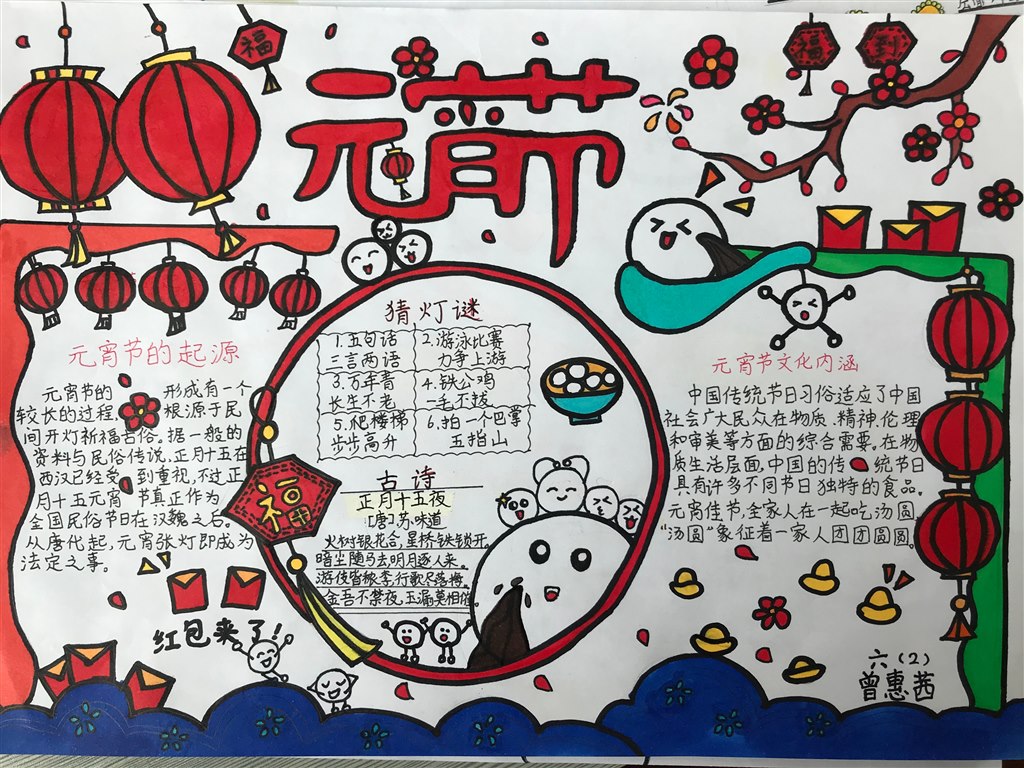 元宵节
福
福
到
元宵节的起源
元宵节的 形成有一个
较长的过程, 根源于民
间开灯祈福古俗。据一般的
资料与民俗传说,正月十五在
西汉已经受 到重视,不过正
月十五元宵 节真正作为
全国民俗节日在汉魏之后。
从唐代起,元宵张灯即成为
法定之事。
红包来了!
猜灯谜
1.五句话
三言两语
2.游泳比赛
力争上游
3.万年青
长生不老
4.铁公鸡
一毛不拔
5.爬楼梯
步步高升
6.拍一个巴掌
五指山
福
古诗
正月十五夜
[唐]苏味道
火树银花合,星桥铁锁开。
暗尘随马去,明月逐人来。
游伎皆秾李,行歌尽落梅。
金吾不禁夜,玉漏莫相催
元宵节文化内涵
中国传统节日习俗适应了中国
社会广大民众在物质、精神、伦理
和审美等方面的综合需要。在物
质生活层面,中国的传 统节日
具有许多不同节日独特的食品。
元宵佳节,全家人在一起吃,汤圆,
“汤圆”象征着一家人团团圆圆。
六(2)
曾惠茜